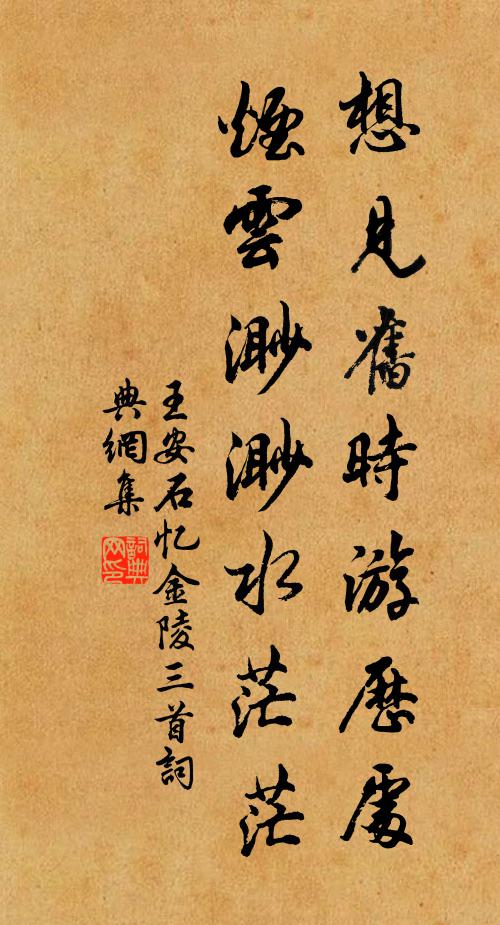 想見舊時游歷處
煙雲渺渺水茫茫
王安石忆金陵三首詞
典網集
詞典
网印